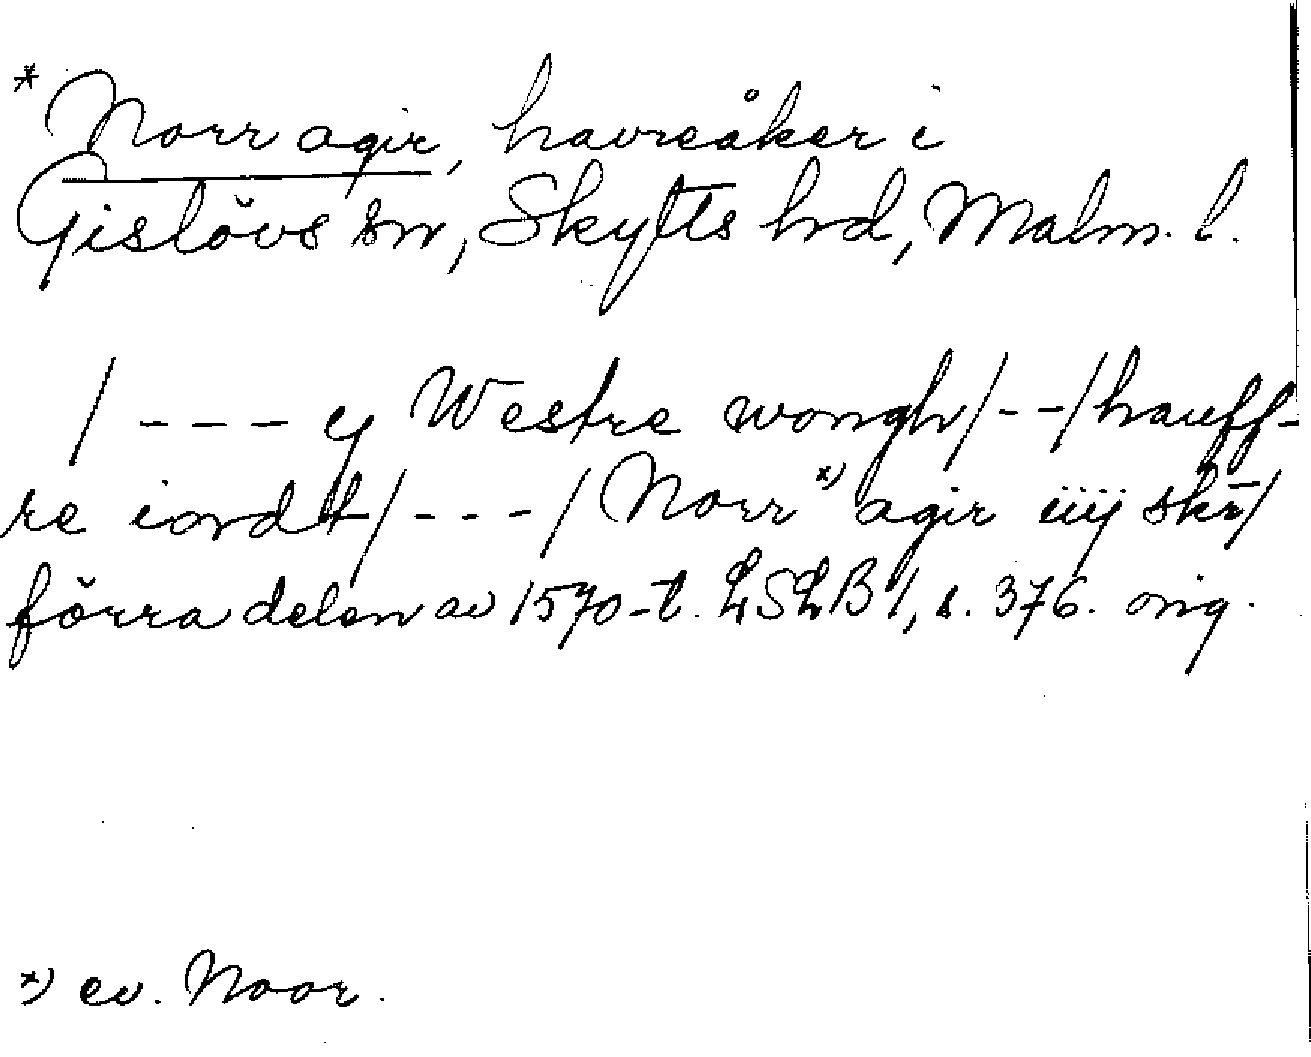 * Norr agir, havreåker i
Gislövs sn, Skytts hd, Malm. l.
/ - - - y Westre wongh/ - - /hauff-
re iordt/ - - - / Norr *) agir iiij skr̄/
förra delen av 1570-t. LSLB 1, s. 376. orig.
*) ev. Noor.